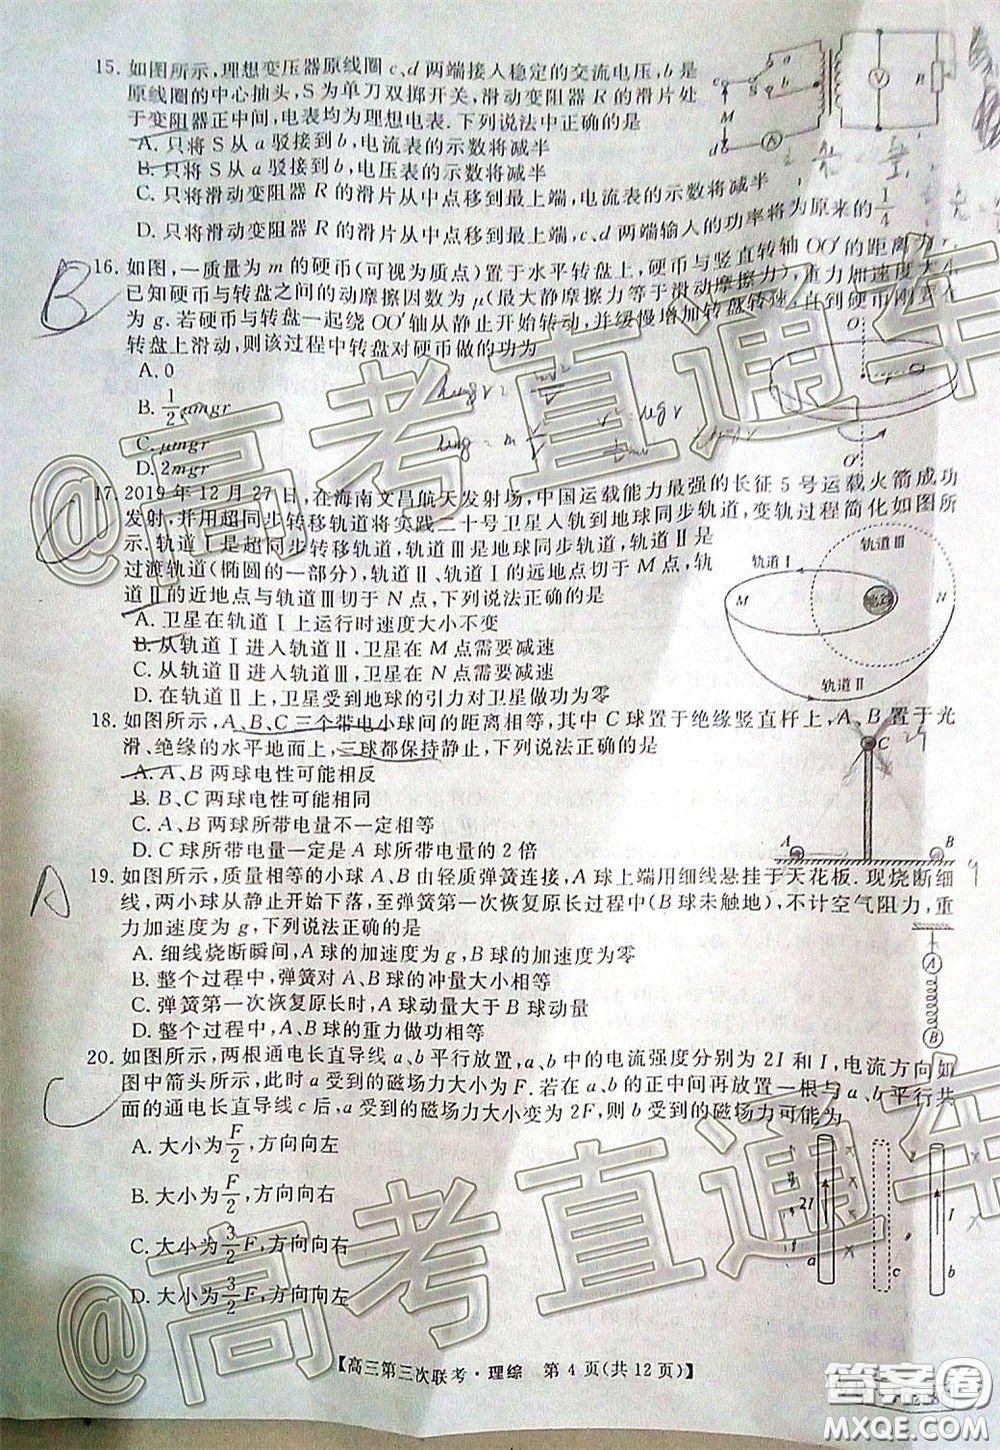 15. 如图所示,理想变压器原线圈 c、d 两端接入稳定的交流电压,b 是
原线圈的中心抽头,S 为单刀双掷开关,滑动变阻器 R 的滑片处
于变阻器正中间,电表均为理想电表. 下列说法中正确的是
A. 只将 S 从 a 驳接到 b,电流表的示数将减半
B. 只将 S 从 a 驳接到 b,电压表的示数将减半
C. 只将滑动变阻器 R 的滑片从中点移到最上端,电流表的示数将减半
D. 只将滑动变阻器 R 的滑片从中点移到最上端,c、d 两端输入的功率将为原来的 1/4
a
b
c
S
M
d
A
V
R
B
16. 如图,一质量为 m 的硬币(可视为质点)置于水平转盘上,硬币与竖直转轴 OO′ 的距离为 r,
已知硬币与转盘之间的动摩擦因数为 μ(最大静摩擦力等于滑动摩擦力),重力加速度
为 g. 若硬币与转盘一起绕 OO′ 轴从静止开始转动,并缓慢增加转盘转速,直到硬币刚要在
转盘上滑动,则该过程中转盘对硬币做的功为
A. 0
B. 1/2 μmgr
C. μmgr
D. 2mgr
O
O′
17. 2019 年 12 月 27 日,在海南文昌航天发射场,中国运载能力最强的长征 5 号运载火箭成功
发射,并用超同步转移轨道将实践二十号卫星入轨到地球同步轨道,变轨过程简化如图所
示. 轨道Ⅰ是超同步转移轨道,轨道Ⅲ是地球同步轨道,轨道Ⅱ是
过渡轨道(椭圆的一部分),轨道Ⅱ、轨道Ⅰ的远地点切于 M 点,轨
道Ⅱ的近地点与轨道Ⅲ切于 N 点,下列说法正确的是
A. 卫星在轨道Ⅰ上运行时速度大小不变
B. 从轨道Ⅰ进入轨道Ⅱ,卫星在 M 点需要减速
C. 从轨道Ⅱ进入轨道Ⅲ,卫星在 N 点需要减速
D. 在轨道Ⅱ上,卫星受到地球的引力对卫星做功为零
轨道Ⅲ
轨道Ⅰ
M
地球
N
轨道Ⅱ
18. 如图所示,A、B、C 三个带电小球间的距离相等,其中 C 球置于绝缘竖直杆上,A、B 置于光
滑、绝缘的水平地面上,三球都保持静止,下列说法正确的是
A. A、B 两球电性可能相反
B. B、C 两球电性可能相同
C. A、B 两球所带电量不一定相等
D. C 球所带电量一定是 A 球所带电量的 2 倍
C
A
B
A
19. 如图所示,质量相等的小球 A、B 由轻质弹簧连接,A 球上端用细线悬挂于天花板. 现烧断细
线,两小球从静止开始下落,至弹簧第一次恢复原长过程中(B 球未触地),不计空气阻力,重
力加速度为 g,下列说法正确的是
A. 细线烧断瞬间,A 球的加速度为 g,B 球的加速度为零
B. 整个过程中,弹簧对 A、B 球的冲量大小相等
C. 弹簧第一次恢复原长时,A 球动量大于 B 球动量
D. 整个过程中,A、B 球的重力做功相等
A
B
C
20. 如图所示,两根通电长直导线 a、b 平行放置,a、b 中的电流强度分别为 2I 和 I,电流方向如
图中箭头所示,此时 a 受到的磁场力大小为 F. 若在 a、b 的正中间再放置一根与 a、b 平行共
面的通电长直导线 c 后,a 受到的磁场力大小变为 2F,则 b 受到的磁场力可能为
A. 大小为 F/2,方向向左
B. 大小为 F/2,方向向右
C. 大小为 3/2 F,方向向右
D. 大小为 3/2 F,方向向左
2I
a
c
I
b
【高三第三次联考·理综 第 4 页(共 12 页)】
@高考直通车
@高考直通车
答案圈
MXQE.COM